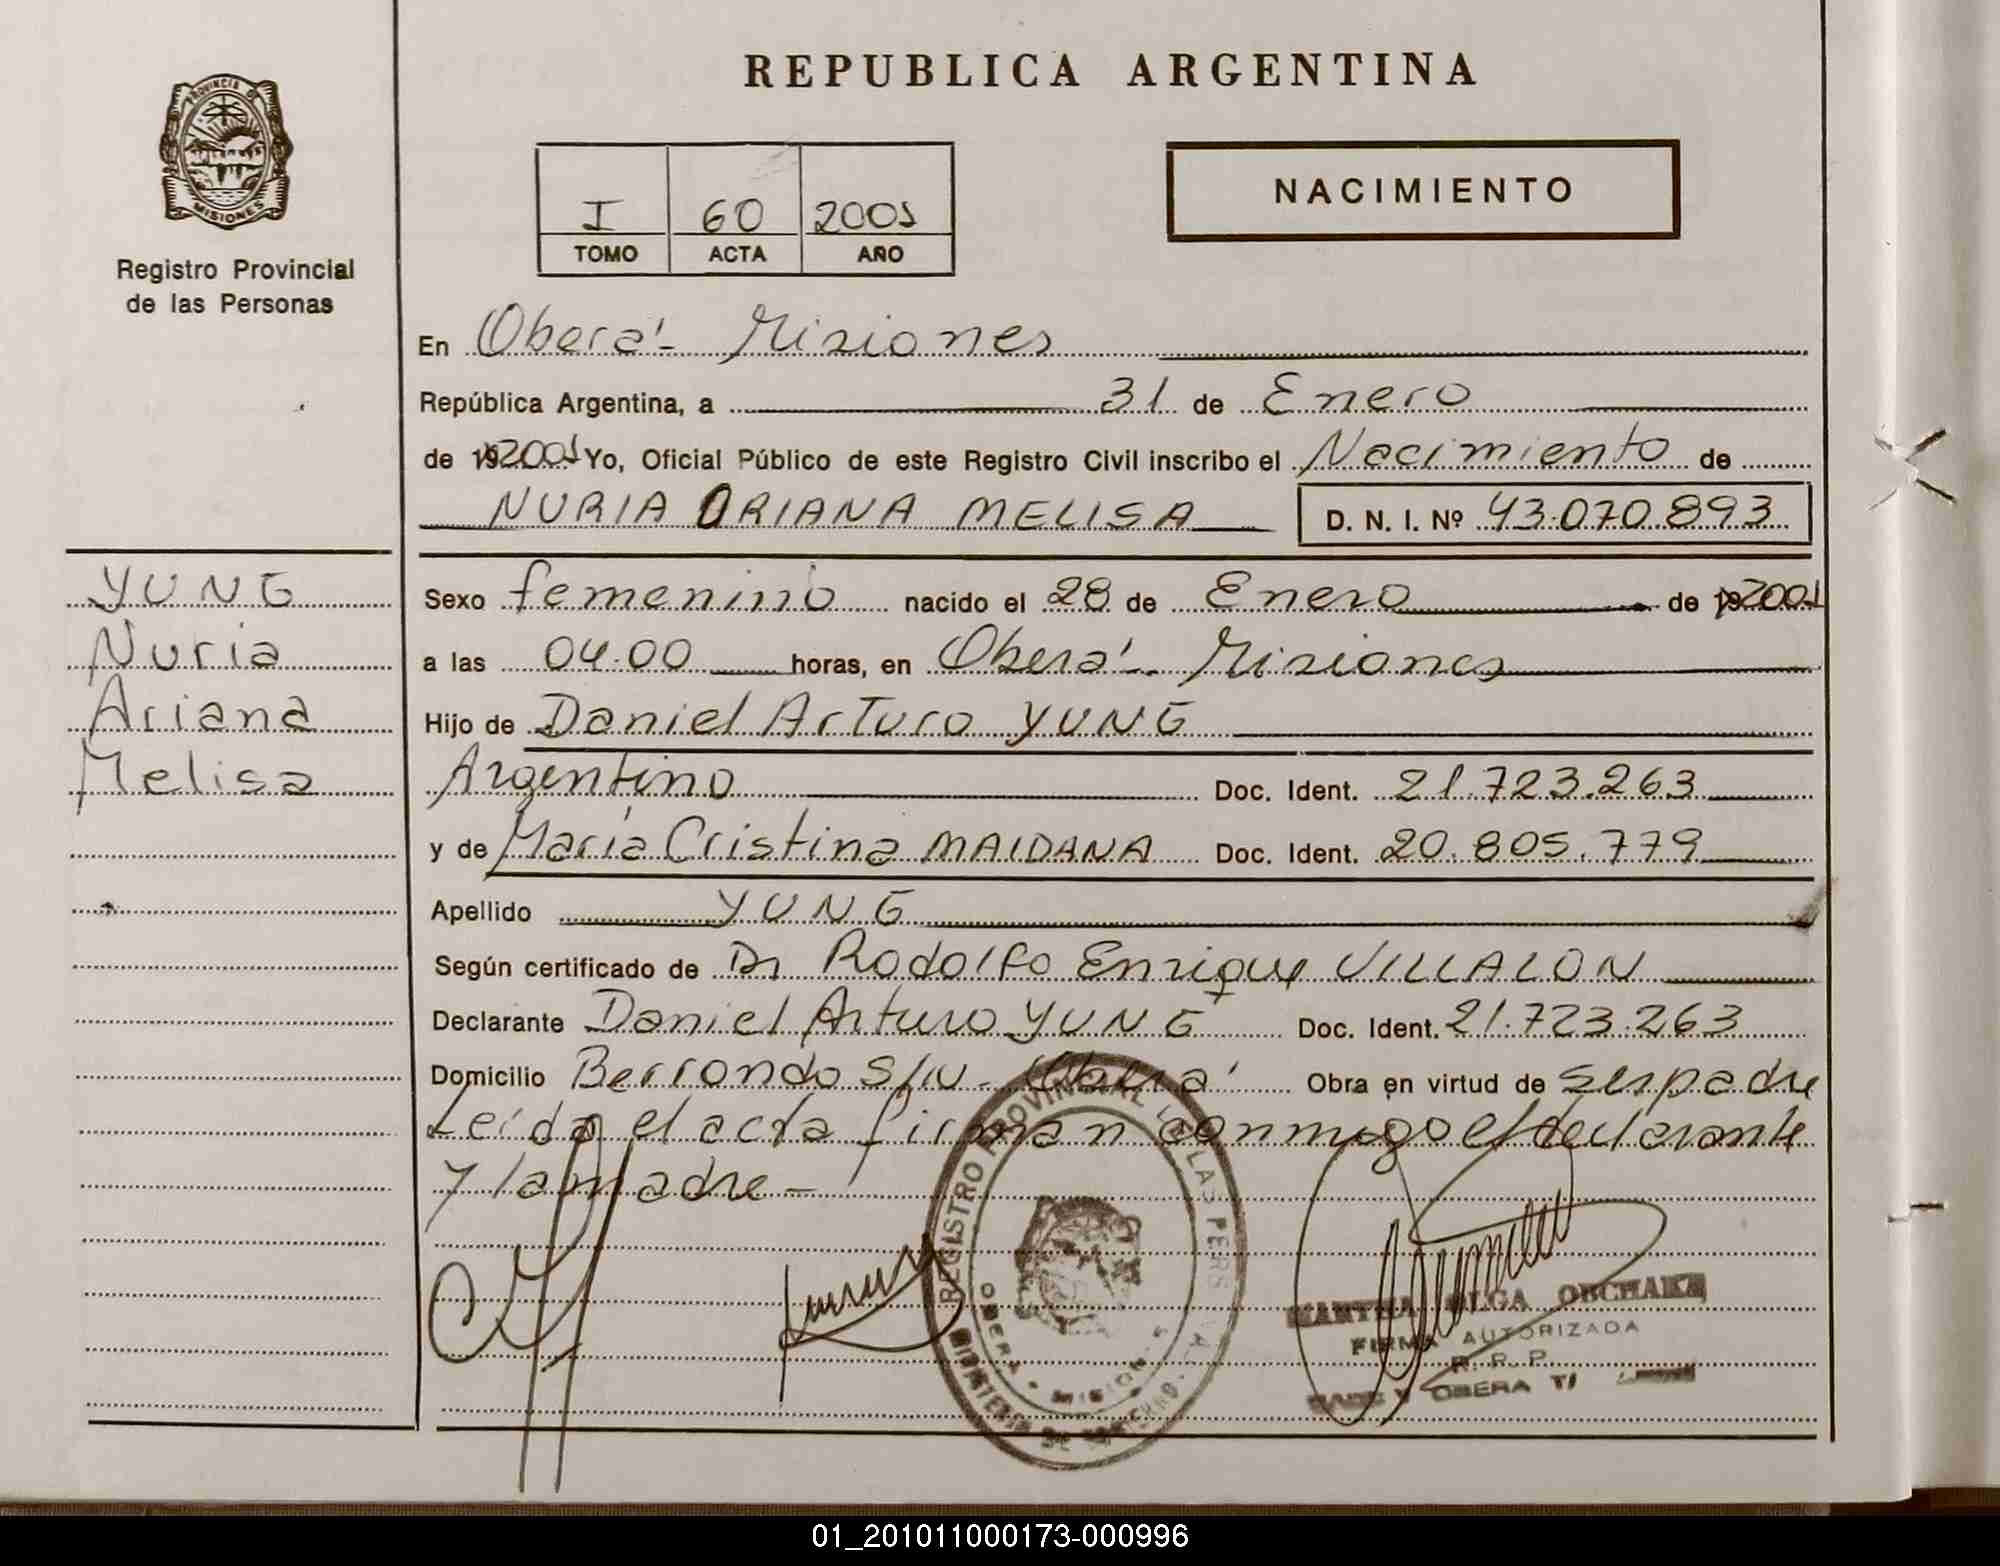 REPUBLICA ARGENTINA
PROVINCIA DE
MISIONES
Registro Provincial
de las Personas
I 60 2001
TOMO ACTA AÑO
NACIMIENTO
En Oberá - Misiones
República Argentina, a 31 de Enero
de 19 2001 Yo, Oficial Público de este Registro Civil inscribo el Nacimiento de
NURIA ORIANA MELISA D. N. I. Nº 43.070.893
YUNG
Nuria
Ariana
Melisa
Sexo femenino nacido el 28 de Enero de 19 2001
a las 04.00 horas, en Oberá - Misiones
Hijo de Daniel Arturo YUNG
Argentino Doc. Ident. 21.723.263
y de María Cristina MAIDANA Doc. Ident. 20.805.779
Apellido YUNG
Según certificado de Dr Rodolfo Enrique VILLALON
Declarante Daniel Arturo YUNG Doc. Ident. 21.723.263
Domicilio Berrondo S/N - Oberá Obra en virtud de ser padre
Leída el acta firman conmigo el declarante
y la madre -
REGISTRO PROVINCIAL DE LAS PERSONAS
OBERA - MISIONES
MINISTERIO DE GOBIERNO
MARTHA OLGA
FIRMA AUTORIZADA
R. R. P.
OBERA
01_201011000173-000996